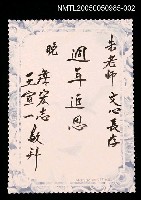 NMTL20050050985-002
朱老師 文心長存
週年追思
晚
蔡宏志
王宣一敬斜